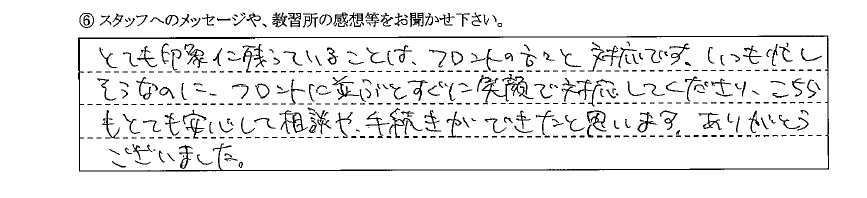 ⑥ スタッフへのメッセージや、教習所の感想等をお聞かせ下さい。
とても印象に残っていることは、フロントの方々と対応です。いつも忙し
そうなのに、フロントに並ぶとすぐに笑顔で対応してくださり、こちら
もとても安心して相談や、手続きができたと思います。ありがとう
ございました。